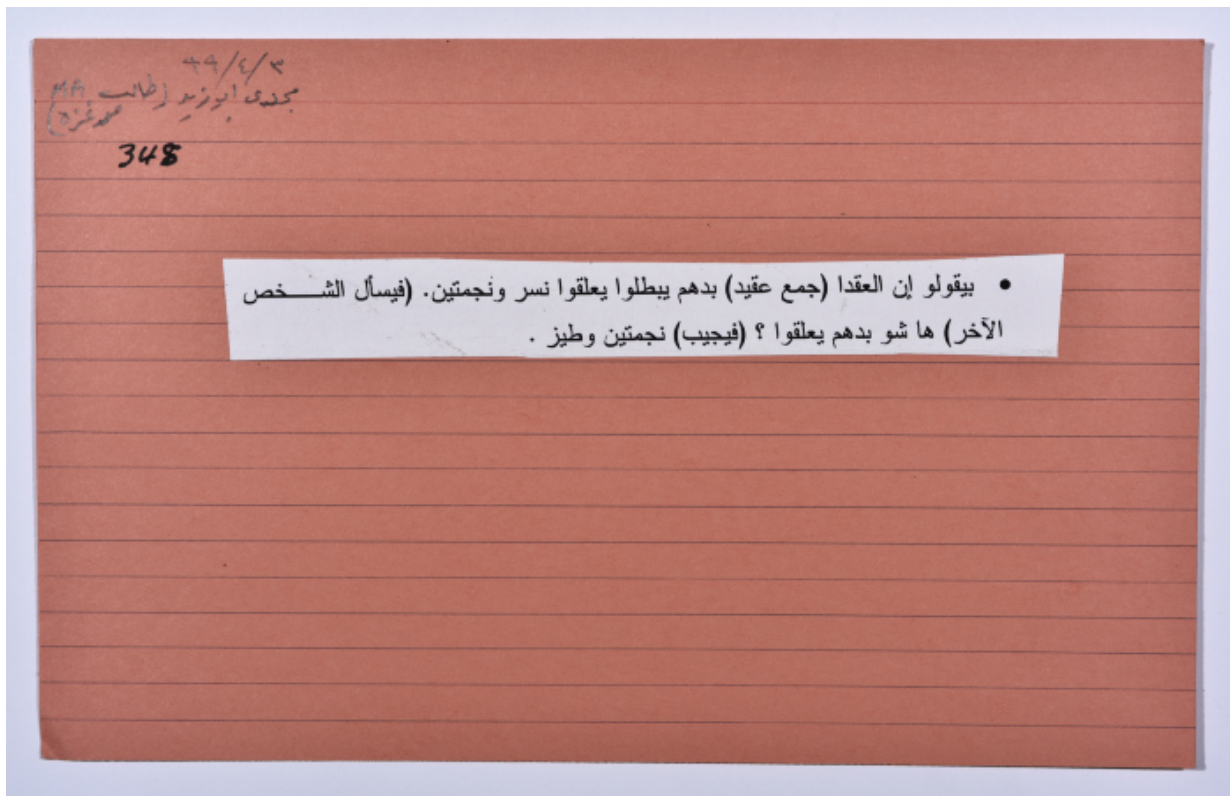 ٩٩/٤/٣
مجدى ابو زيد (طالب MA
من غزة)
348
• بيقولو إن العقدا (جمع عقيد) بدهم يبطلوا يعلقوا نسر ونجمتين. (فيسأل الشخص
الآخر) ها شو بدهم يعلقوا ؟ (فيجيب) نجمتين وطيز .